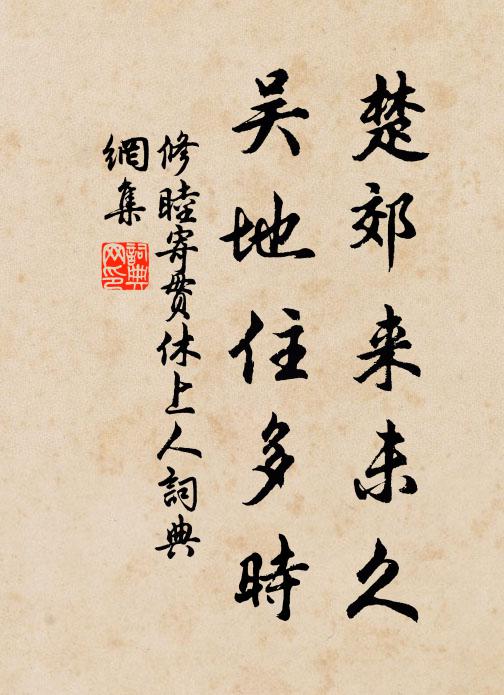 楚郊来未久
吴地住多時
修睦寄貫休上人詞典
網集
詞典
网印